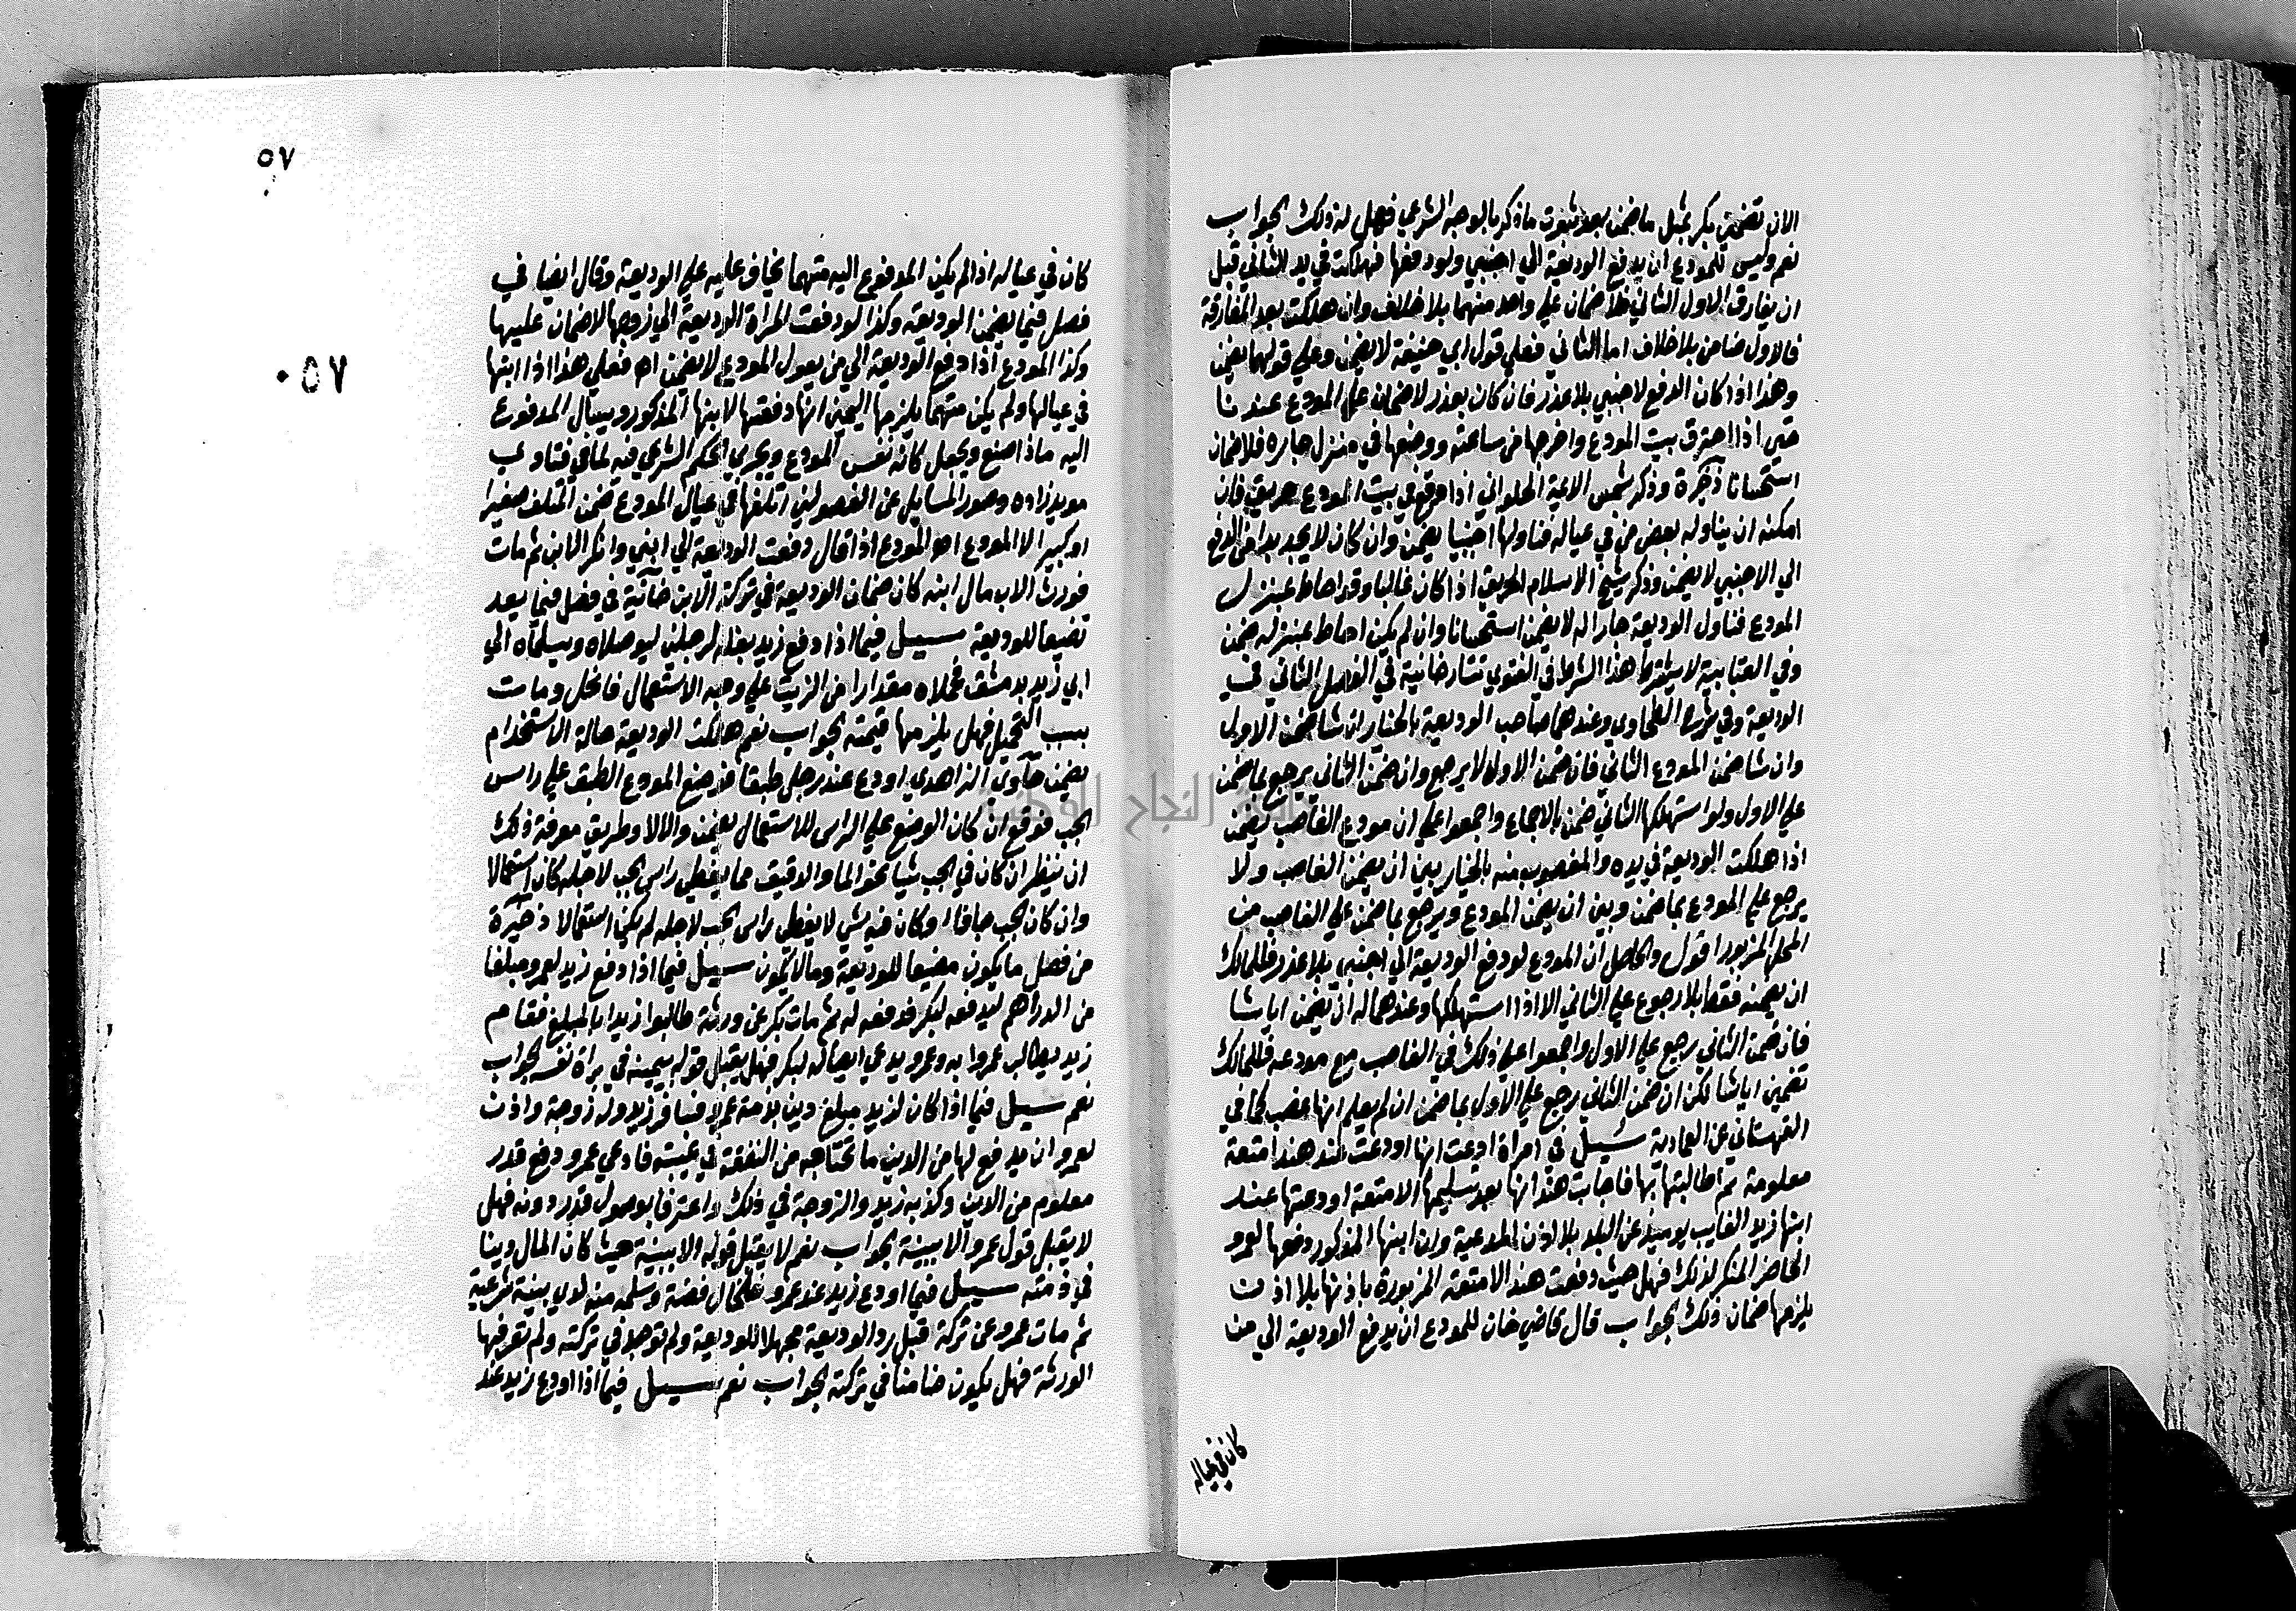 الان تضمين بكر بمثل ما ضمن بعد ثبوت ما ذكر بالوجه الشرعي فهل له ذلك الجواب
نعم وليس للمودع ان يدفع الوديعة الي اجنبي ولو دفعها فهلكت في يد الثاني قبل
ان يفارق الاول الثاني فلا ضمان علي واحد منهما بلا خلاف وان هلكت بعد المفارقة
فالاول ضامن بلا خلاف اما الثاني فعلي قول ابي حنيفة لا يضمن وعلي قولهما يضمن
وهذا اذا كان الدفع لاجنبي بلا عذر فان كان بعذر لا ضمان علي المودع عندنا
حتي اذا احترق بيت المودع واخرجها من ساعته ووضعها في منزل جاره فلا ضمان
استحسانا ذخيرة وذكر شمس الايمة الحلواني اذا وقع في بيت المودع حريق فان
امكنه ان يناوله بعض من في عياله فناولها اجنبيا يضمن وان كان لا يجد بدا من الدفع
الي الاجنبي لا يضمن وذكر شيخ الاسلام الحريق اذا كان غالبا وقد احاط بمنزل
المودع فناول الوديعة جارا له لا يضمن استحسانا وان لم يكن احاط بمنزله ضمن
وفي العتابية لا يشترط هذا الشرط في الفتوي تتارخانية في الفصل الثاني في
الوديعة وفي شرح الطحاوي وعندهما صاحب الوديعة بالخيار ان شا ضمن الاول
وان شا ضمن المودع الثاني فان ضمن الاول لا يرجع وان ضمن الثاني يرجع بما ضمن
علي الاول ولو استهلكها الثاني ضمن بالاجماع واجمعوا علي ان مودع الغاصب يضمن
اذا هلكت الوديعة في يده والمغصوب منه بالخيار بين ان يضمن الغاصب ولا
يرجع علي المودع بما ضمن وبين ان يضمن المودع ويرجع بما ضمن علي الغاصب من
المحل المزبور اقول والحاصل ان المودع لو دفع الوديعة الي اجنبي بلا عذر فللمالك
ان يضمنه فقط بلا رجوع علي الثاني الا اذا استهلكها وعندهما له ان يضمن ايا شا
فان ضمن الثاني رجع علي الاول واجمعوا علي ذلك في الغاصب مع مودعه فللمالك
تضمين ايا شا لكن ان ضمن الثاني رجع علي الاول بما ضمن ان لم يعلم انها غصب كما في
القهستاني عن العمادية سيل في امراة ادعت انها اودعت عند هند امتعة
معلومة ثم طالبتها بها فاجابت هند انها بعد تسليمها الامتعة اودعتها عند
ابنها زيد الغايب يوميذ عن البلد بلا اذن المدعية وان ابنها المذكور دفعها لعمرو
الحاضر المنكر لذلك فهل حيث دفعت هند الامتعة المزبورة باذنها بلا اذن
يلزمها ضمان ذلك الجواب قال قاضي خان للمودع ان يدفع الوديعة الي من
كان في عياله
٥٧
٠٥٧
كان في عياله اذا لم يكن المدفوع اليه متهما يخاف عليه علي الوديعة وقال ايضا في
فصل فيما يضمن الوديعة وكذا لو دفعت المراة الوديعة الي زوجها لا ضمان عليها
وكذا المودع اذا دفع الوديعة الي من يعول المودع لا يضمن اه فعلي هذا اذا ابنها
في عيالها ولم يكن متهما يلزمها اليمين انها دفعتها لابنها المذكور ويسال المدفوع
اليه ماذا صنع ويجعل كانه نفس المودع ويجري الحكم الشرعي فيه لما في فتاوي
مويد زاده وصور المسايل عن الفصولين اتلفها في عيال المودع ضمن المتلف صغيرا
او كبيرا لا المودع اه المودع اذا قال دفعت الوديعة الي ابني وانكر الابن ثم مات
فورث الاب مال ابنه كان ضمان الوديعة في تركة الابن خانية في فصل فيما يعد
تضيعا للوديعة سيل فيما اذا دفع زيد بغله لرجلين ليوصلاه ويسلماه الي
ابي زيد بدمشق فحملاه مقدارا من الزيت علي وجه الاستعمال فانحل ومات
بسبب التحميل فهل يلزمها قيمته الجواب نعم هلكت الوديعة حالة الاستخدام
يضمن حاوي الزاهدي اودع عند رجل طبقا فوضع المودع الطبق علي راس
الجب فوقع ان كان الوضع علي الراس للاستعمال يضمن والا لا وطريق معرفة ذلك
ان ينظر ان كان في الجب شيا نحو الما والدقيق مما يغطي راس الجب لاجله كان استعمالا
وان كان الجب خاليا او كان فيه شي لا يغطي راس الجب لاجله لم يكن استعمالا ذخيرة
من فصل ما يكون مضيعا للوديعة وما لا يكون سيل فيما اذا دفع زيد لعمرو مبلغا
من الدراهم ليدفعه لبكر فدفعه له ثم مات بكر عن ورثة طالبوا زيدا بالمبلغ فقام
زيد يطالب عمروا به وعمرو يدعي ايصاله لبكر فهل يقبل قوله بيمينه في براة نفسه الجواب
نعم سيل فيما اذا كان لزيد مبلغ دين بذمة عمرو فسافر زيد وله زوجة واذن
لعمرو ان يدفع لها من الدين ما تحتاجه من النفقة في غيبته فادعي عمرو دفع قدر
معلوم من الدين وكذبه زيد والزوجة في ذلك واعترفا بوصول قدر دونه فهل
لا يقبل قول عمرو الا ببينة الجواب نعم لا يقبل قوله الا ببينة حيث كان المال دينا
في ذمته سيل فيما اودع زيد عند عمرو خلخال فضة وسلمه منه لدي بينة شرعية
ثم مات عمرو عن تركة قبل رد الوديعة مجهلا للوديعة ولم توجد في تركته ولم تعرفها
الورثة فهل يكون ضامنا في تركته الجواب نعم سيل فيما اذا اودع زيد عند